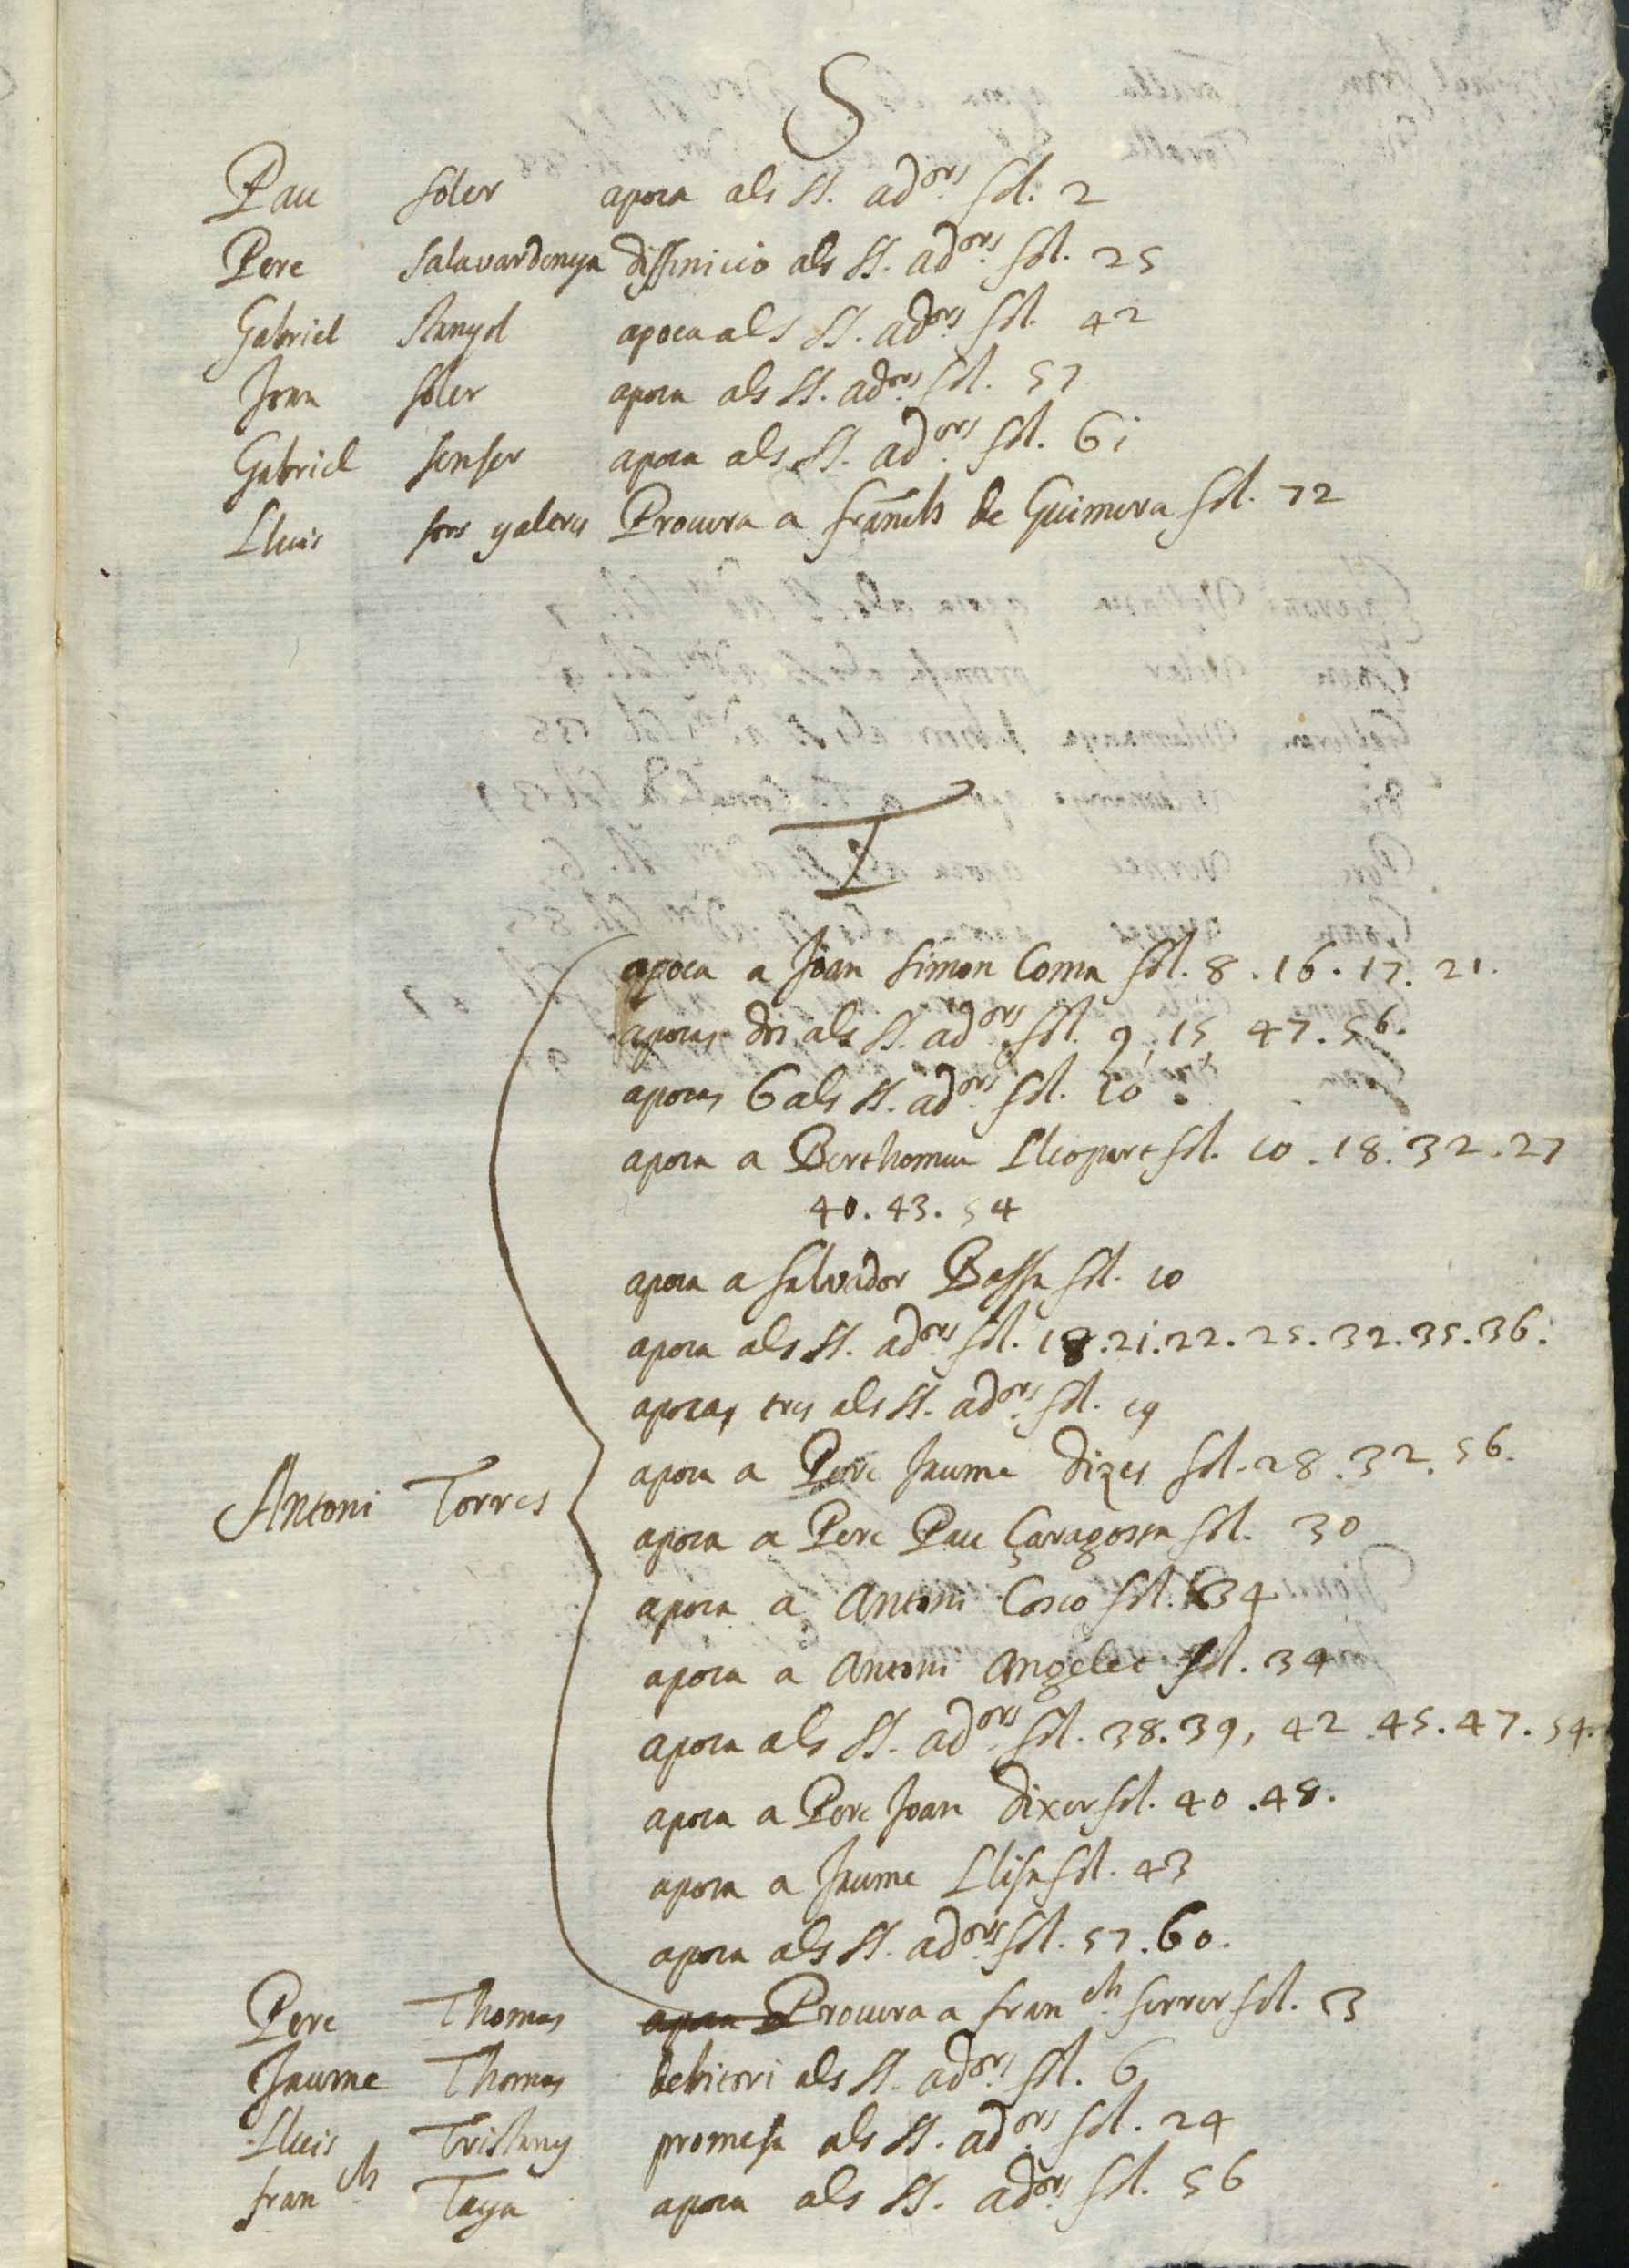 S
Pau Soler apoca als SS. ad.ors fol. 2
Pere Salavardenya diffinicio als SS. ad.ors fol. 25
Gabriel Stanyol apoca als SS. ad.ors fol. 42
Joan Soler apoca als SS. ad.ors fol. 57
Gabriel Senser apoca als SS. ad.ors fol. 61
Lluis Procura a Franch de Guimera fol. 72
T
apoca a Joan Simon Coma fol. 8 . 16 . 17 . 21.
apocas dos als SS. ad.ors fol. 9, 15, 47 . 56.
apocas 6 als SS. ad.ors fol. 10 .
apoca a Berthomeu Lleopart fol. 10 . 18 . 32 . 27
40 . 43 . 54
apoca a Salvador Bassa fol. 10
apoca als SS. ad.ors fol. 18 . 21 . 22 . 25 . 32 . 35 . 36 .
apocas tres als SS. ad.ors fol. 19
apoca a Pere Jaume Dizes fol. 28 . 32 . 56.
Antoni Torres
apoca a Pere Pau Çaragossa fol. 30
apoca a Antoni Cosco fol. 34
apoca a Antoni Angelet fol. 34
apoca als SS. ad.ors fol. 38 . 39, 42 . 45 . 47 . 54.
apoca a Pere Joan Dixer fol. 40 . 48 .
apoca a Jaume Llisa fol. 43
apoca als SS. ad.ors fol. 57 . 60 .
Pere Thomas apoca a Procura a Fran.ch Ferrer fol. 3
Jaume Thomas debitori als SS. ad.ors fol. 6
Lluis Tristany promesa als SS. ad.ors fol. 24
Fran.ch Taya apoca als SS. ad.ors fol. 56